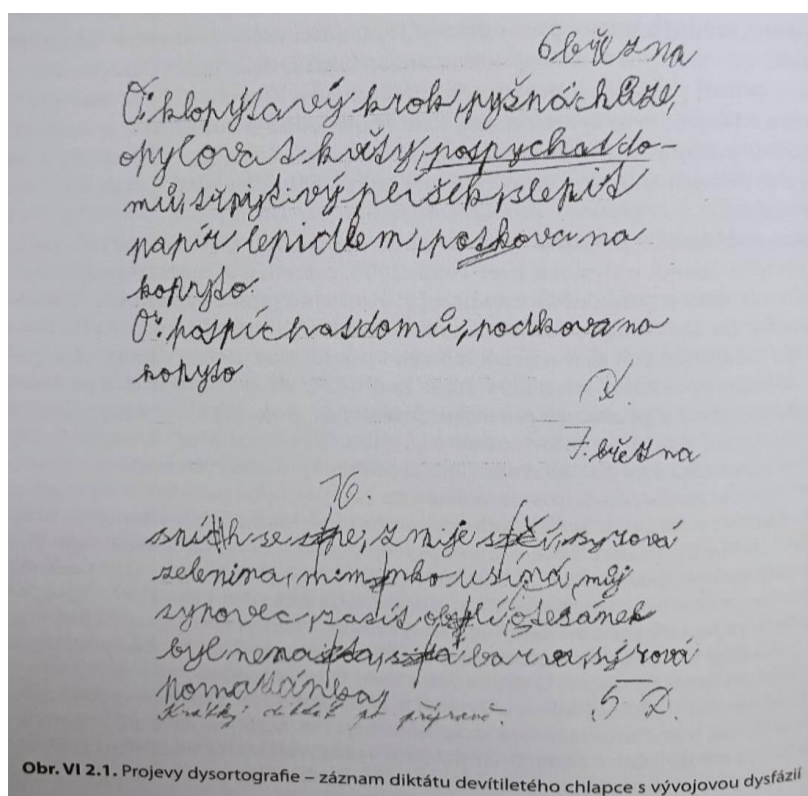 6 března
O: klopýtavý krok, pyšná chůze,
opylovat květy, pospychat do-
mů, třpytivý peříšek, slepit
papír lepidlem, potkova na
kopyto.
O: pospíchat domů, podkova na
kopyto
D.
7. března
16.
sníh se , zmije , syrová
zelenina, miminko usíná, můj
synovec, zasít obilí, otesánek
byl nena , barva, sýrová
pomazánka,
Krátký diktát po přípravě.
5 D.
Obr. VI 2.1. Projevy dysortografie – záznam diktátu devítiletého chlapce s vývojovou dysfázií